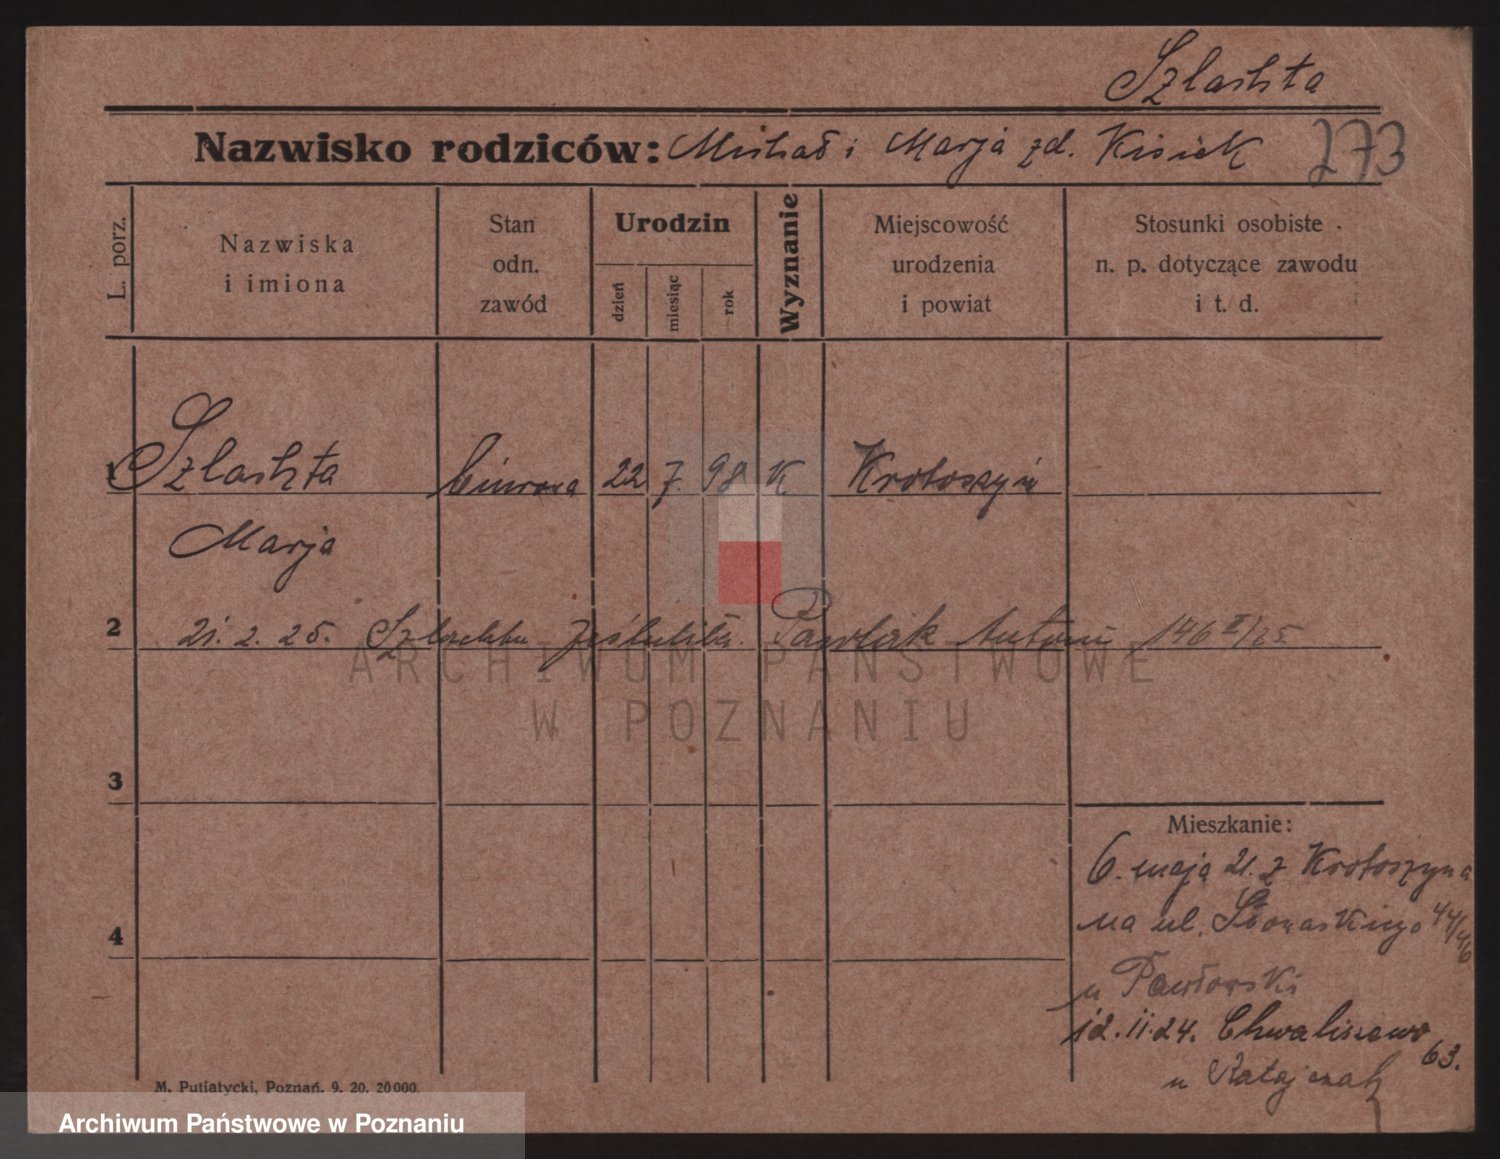 Szlachta
Nazwisko rodziców: Michał i Marja zd. Kisiek 273
L. porz.
Nazwiska
i imiona
Stan
odn.
zawód
Urodzin
dzień
miesiąc
rok
Wyznanie
Miejscowość
urodzenia
i powiat
Stosunki osobiste
n. p. dotyczące zawodu
i t. d.
1 Szlachta biurowa 22 7. 98 K Krotoszyń
Marja
2 21. 2. 25. Szlachta Pawlak Antoni 146 II/25
ARCHIWUM PAŃSTWOWE
W POZNANIU
3
Mieszkanie:
6. maja 21. z Krotoszyna
4
na ul. 44/46
u Pawłowski
12.11.24. Chwaliszewo 63.
u Ratajczak
M. Putiatycki, Poznań. 9. 20. 20000.
Archiwum Państwowe w Poznaniu